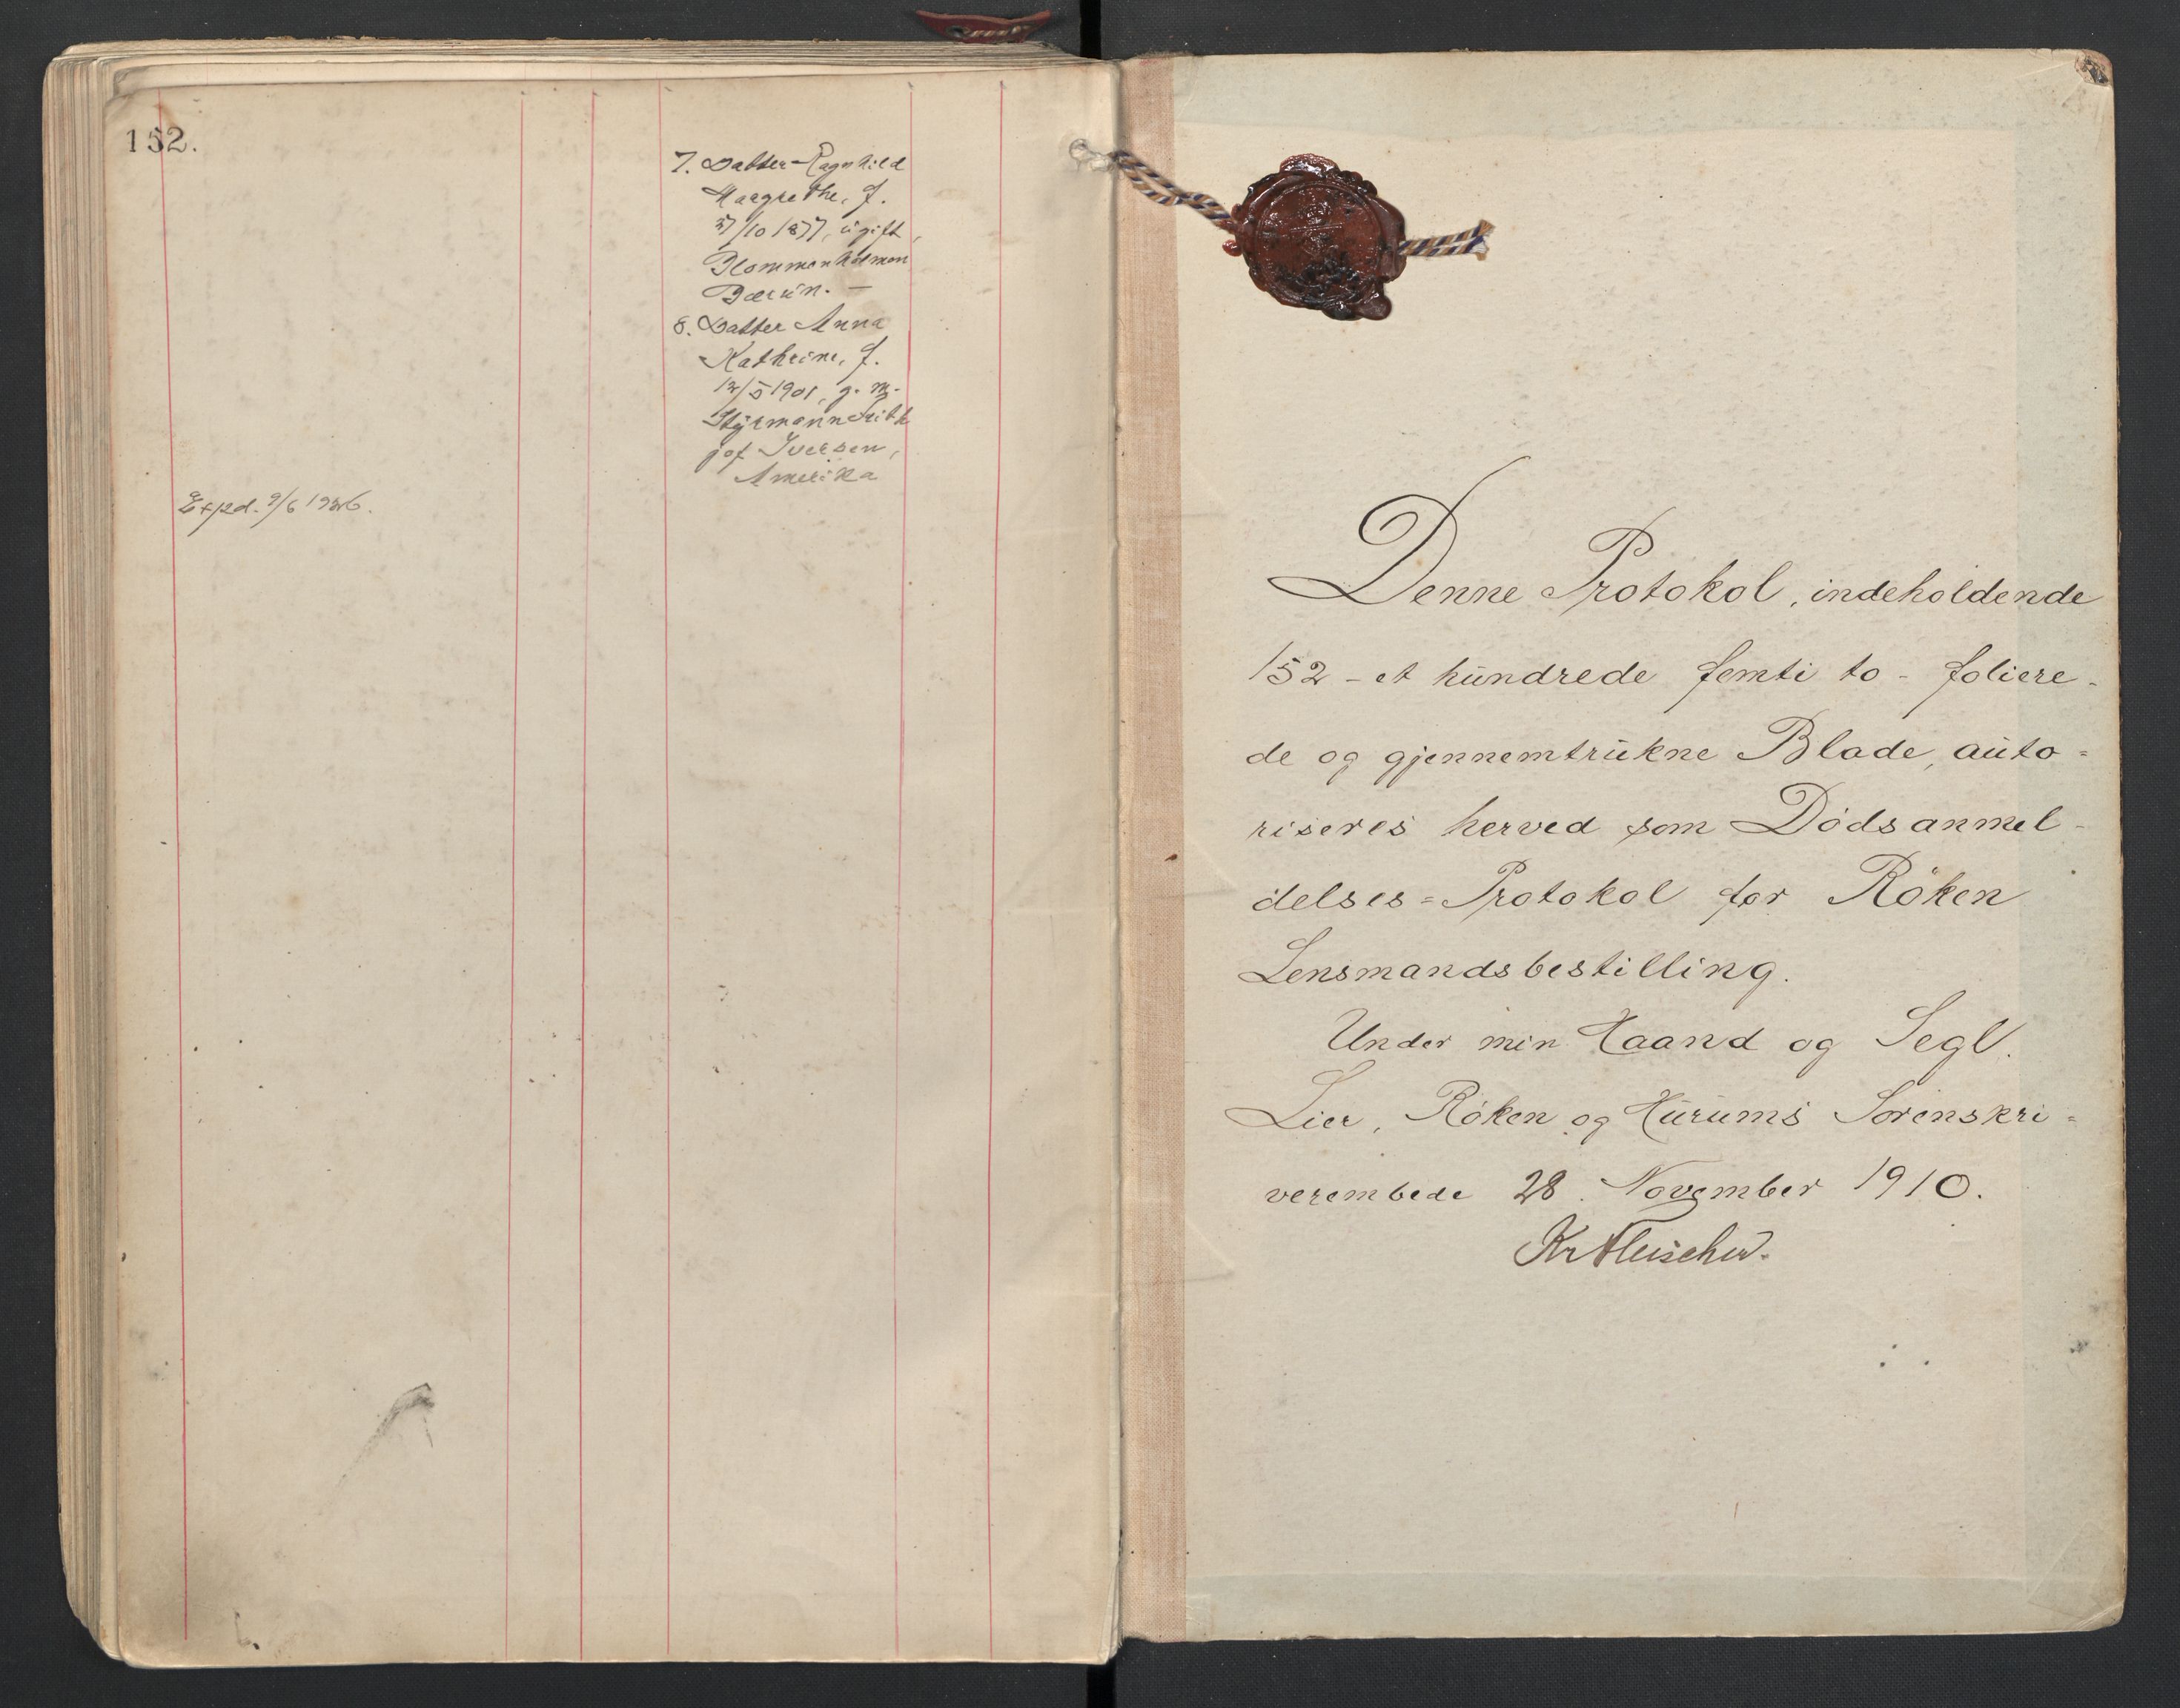 152.
7. Datter Ragnhild
Margrethe, f.
27/10 1877, ugift,
Blommenholmen
Bærum. —
8. Datter Anna
Kathrine, f.
12/5 1901, g. m.
Styrmann Frith
jof Iversen,
Amerika
Expd. 9/6 1926.
Denne Protokol, indeholdende
152 - et hundrede femti to - foliere-
de og gjennemtrukne Blade, auto=
riseres herved som Dødsanmel-
delses=Protokol for Röken
Lensmandsbestilling.
Under min Haand og Segl.
Lier, Röken og Hurums Sorenskri=
verembede 28. November 1910.
Kr Fleischer.